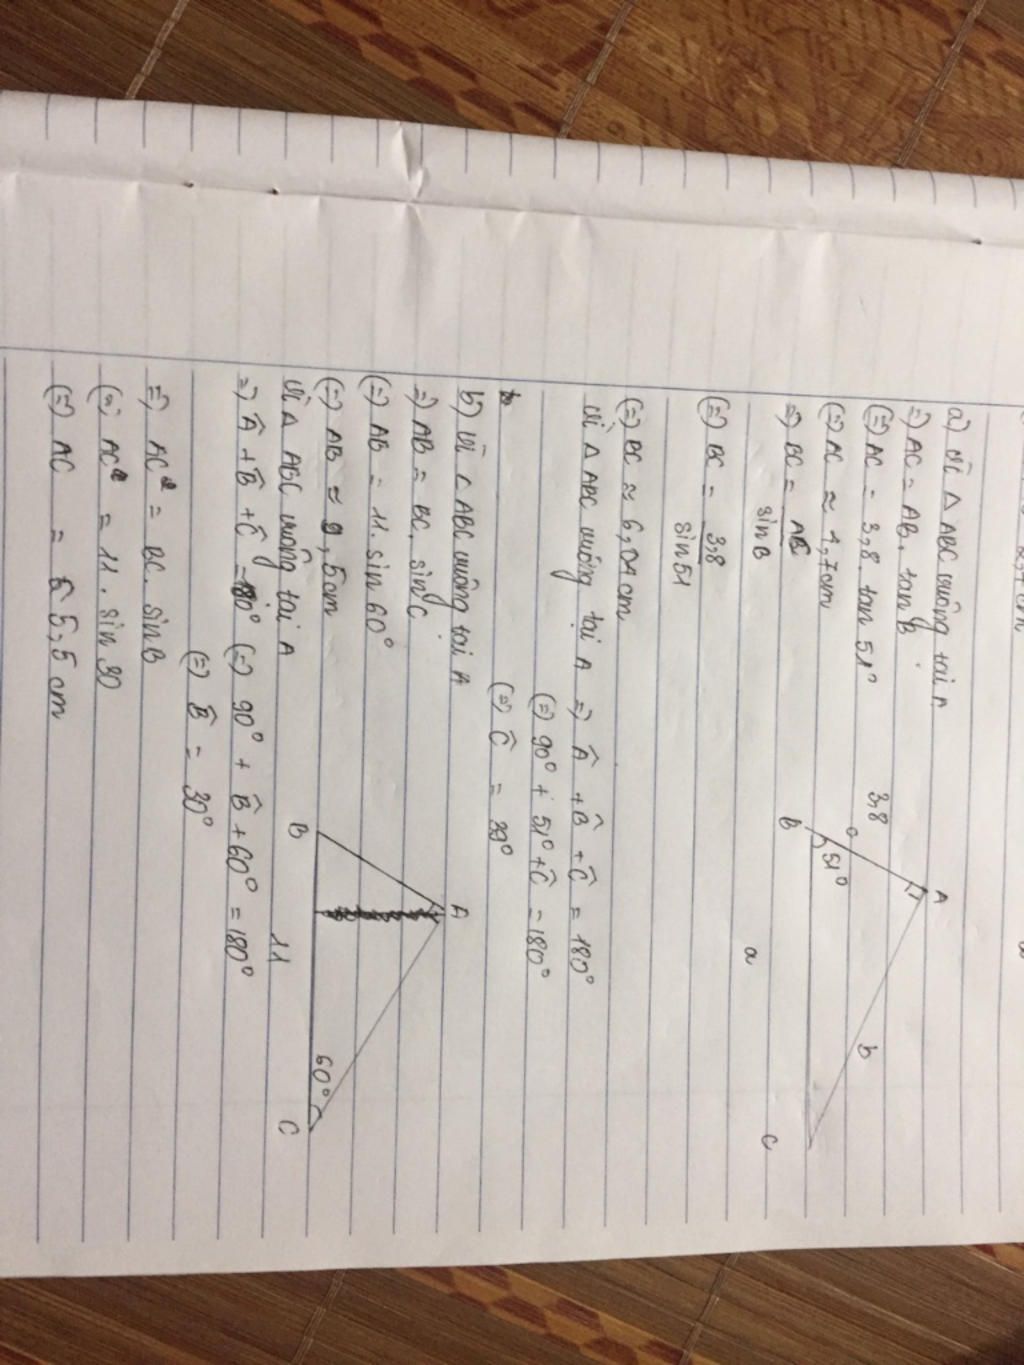 a) Vì △ ABC vuông tại A
=) AC = AB. tan B
(=) AC = 3,8. tan 51°
(=) AC ≈ 4,7cm
=) BC = AC / sin B
(=) BC = 3,8 / sin 51
(=) BC ≈ 6,04 cm
Vì △ ABC vuông tại A =) Â + B̂ + Ĉ = 180°
(=) 90° + 51° + Ĉ = 180°
(=) Ĉ = 39°
A
3,8
c
B
51°
b
a
C
b) Vì △ ABC vuông tại A
=) AB = BC. sin C
(=) AB = 11. sin 60°
(=) AB ≈ 9,5cm
Vì △ ABC vuông tại A
=) Â + B̂ + Ĉ = 180° (=) 90° + B̂ + 60° = 180°
(=) B̂ = 30°
=) AC = BC. sin B
(=) AC = 11. sin 30
(=) AC = 5,5 cm
A
B
11
60°
C